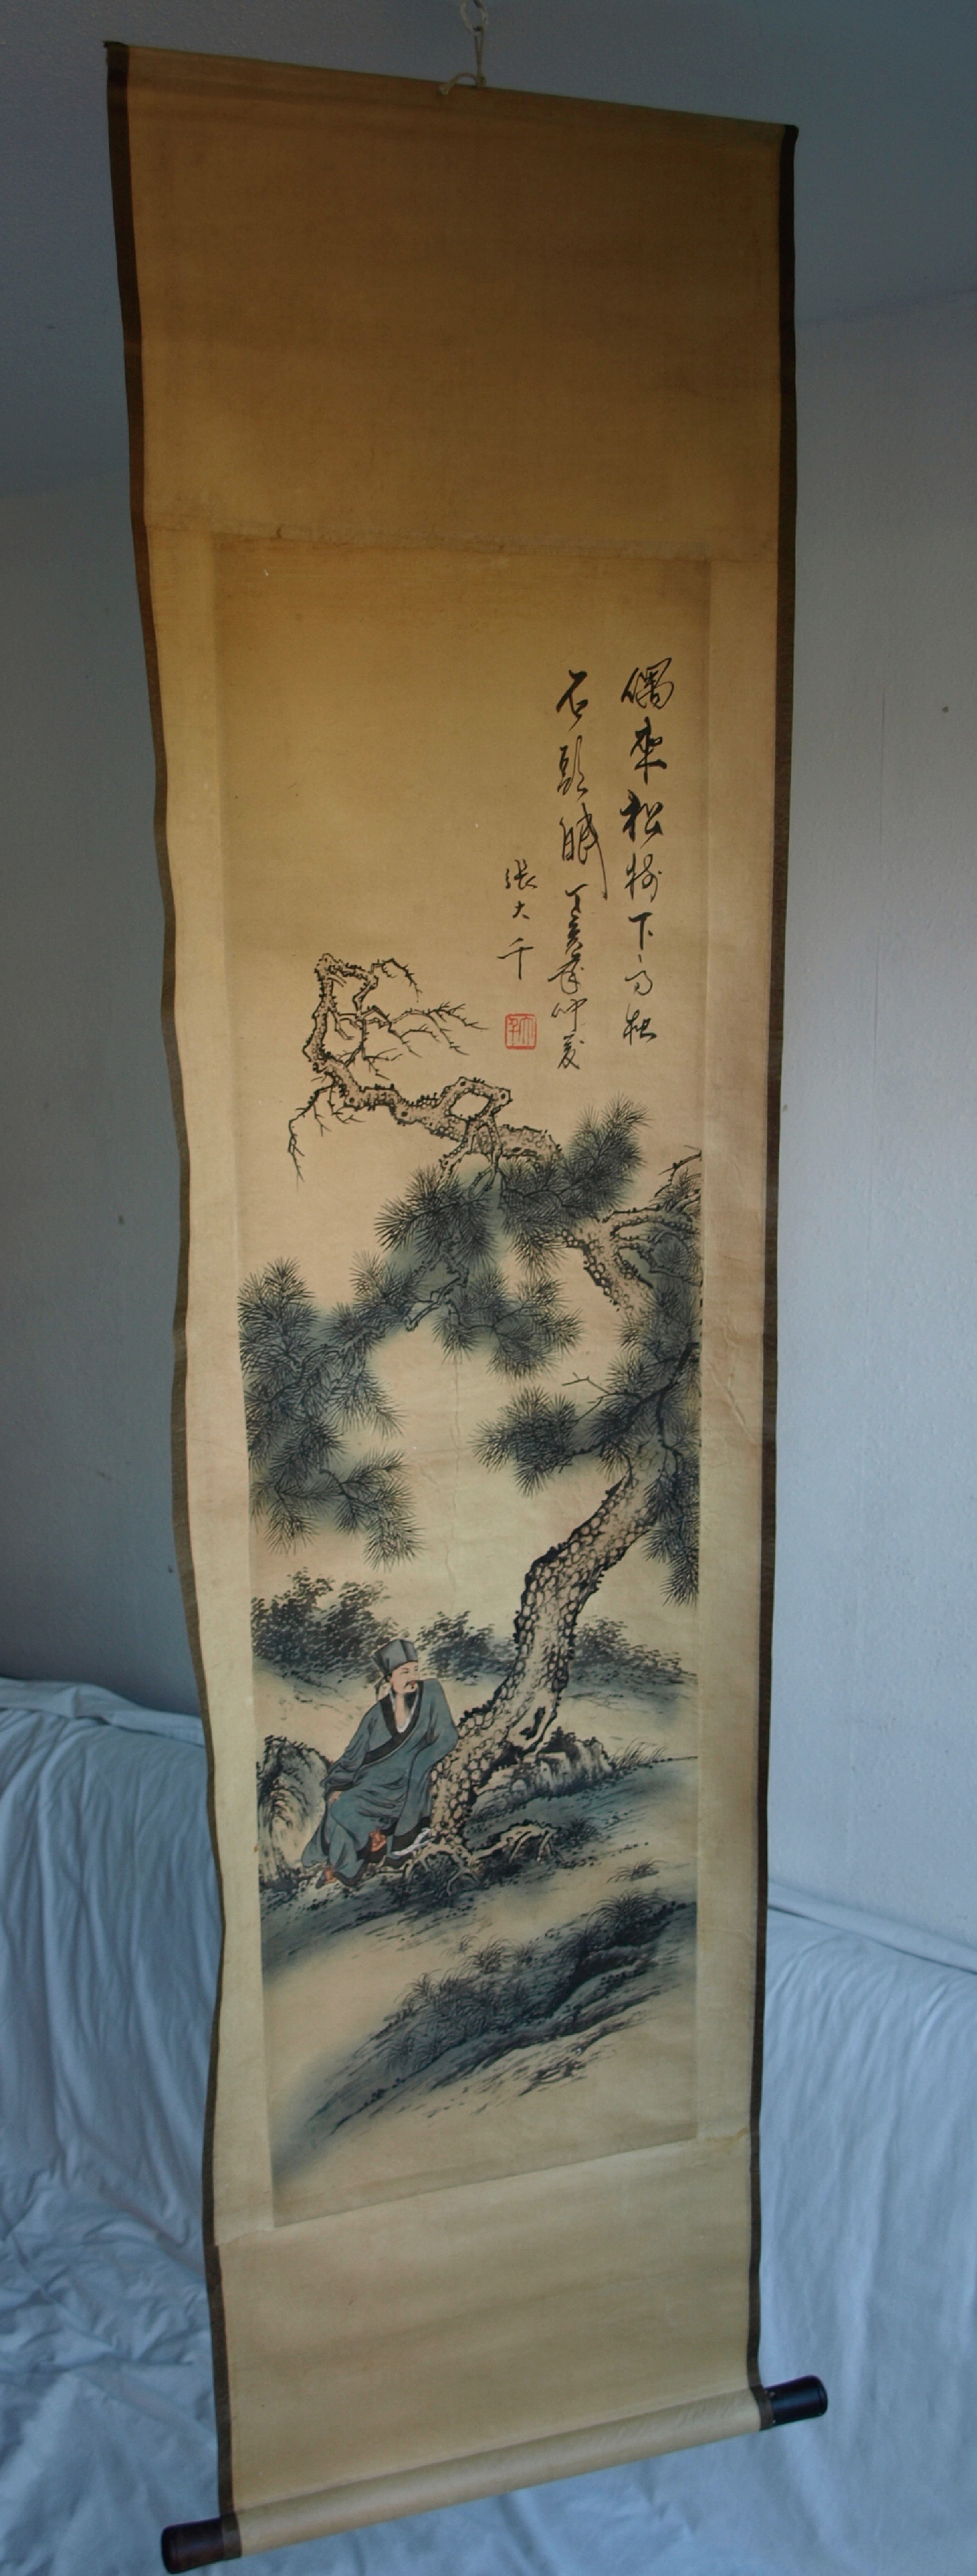 偶來松樹下高枕
石頭眠 丁亥仲夏
張大千
大千